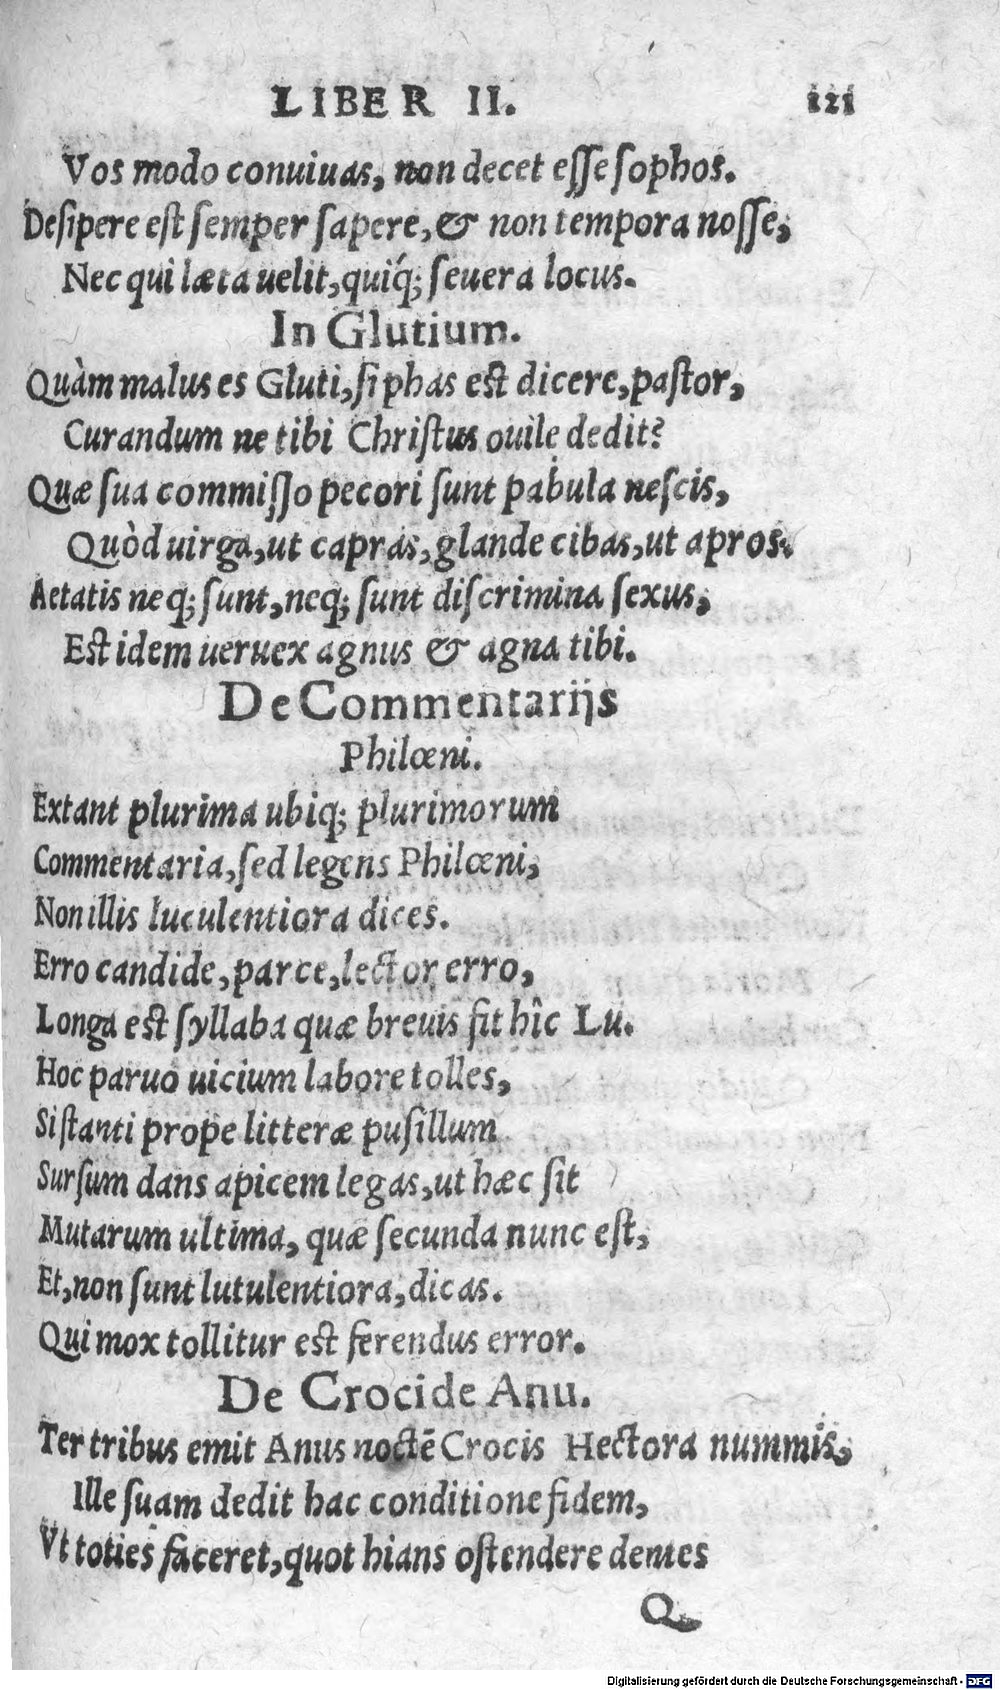 LIBER II. 121
Vos modo conuiuas, non decet esse sophos.
Desipere est semper sapere, & non tempora nosse,
Nec qui læta uelit, quiq́; seuera locus.
In Glutium.
Quàm malus es Gluti, si phas est dicere, pastor,
Curandum ne tibi Christus ouile dedit?
Quæ sua commisso pecori sunt pabula nescis,
Quòd uirga, ut capras, glande cibas, ut apros.
Aetatis neq; sunt, neq; sunt discrimina sexus,
Est idem ueruex agnus & agna tibi.
De Commentarijs
Philœni.
Extant plurima ubiq; plurimorum
Commentaria, sed legens Philœni,
Non illis luculentiora dices.
Erro candide, parce, lector erro,
Longa est syllaba quæ breuis sit hîc Lu.
Hoc paruo uicium labore tolles,
Si stanti prope litteræ pusillum
Sursum dans apicem legas, ut hæc sit
Mutarum ultima, quæ secunda nunc est,
Et, non sunt lutulentiora, dicas.
Qui mox tollitur est ferendus error.
De Crocide Anu.
Ter tribus emit Anus noctē Crocis Hectora nummis,
Ille suam dedit hac conditione fidem,
Vt toties faceret, quot hians ostendere dentes
Q
Digitalisierung gefördert durch die Deutsche Forschungsgemeinschaft - DFG